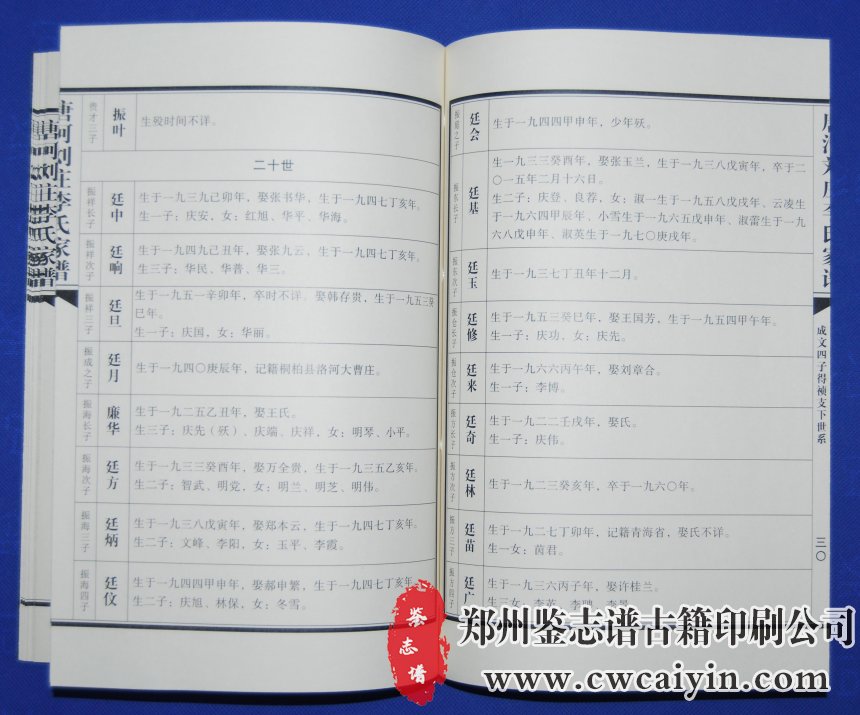 唐河刘庄李氏家谱
唐河刘庄李氏家谱
贵才三子
振叶
生殁时间不详。
二十世
振祥长子
廷中
生于一九三九己卯年，娶张书华，生于一九四七丁亥年。
生一子：庆安，女：红旭、华平、华海。
振祥次子
廷响
生于一九四九己丑年，娶张九云，生于一九四七丁亥年。
生三子：华民、华普、华三。
振祥三子
廷旦
生于一九五一辛卯年，卒时不详。娶韩存贵，生于一九五三癸
巳年。
生一子：庆国，女：华丽。
振成之子
廷月
生于一九四〇庚辰年，记籍桐柏县洛河大曹庄。
振海长子
廉华
生于一九二五乙丑年，娶王氏。
生三子：庆先（殀）、庆端、庆祥，女：明琴、小平。
振海次子
廷方
生于一九三三癸酉年，娶万全贵，生于一九三五乙亥年。
生二子：智武、明党，女：明兰、明芝、明伟。
振海三子
廷炳
生于一九三八戊寅年，娶郑本云，生于一九四七丁亥年。
生二子：文峰、李阳，女：玉平、李霞。
振海四子
廷仪
生于一九四四甲申年，娶郝申繁，生于一九四七丁亥年。
生二子：庆旭、林保，女：冬雪。
之子
廷会
生于一九四四甲申年，少年殀。
振东长子
廷基
生一九三三癸酉年，娶张玉兰，生于一九三八戊寅年，卒于二
〇一五年二月十六日。
生二子：庆登、良荐，女：淑一生于一九五八戊戌年、云凌生
于一九六四甲辰年、小雪生于一九六五戊申年、淑蕾生于一九
六八戊申年、淑英生于一九七〇庚戌年。
振东次子
廷玉
生于一九三七丁丑年十二月。
振仓长子
廷修
生于一九五三癸巳年，娶王国芳，生于一九五四甲午年。
生一子：庆功，女：庆先。
振仓次子
廷来
生于一九六六丙午年，娶刘章合。
生一子：李博。
振方长子
廷奇
生于一九二二壬戌年，娶氏。
生一子：庆伟。
振方次子
廷林
生于一九二三癸亥年，卒于一九六〇年。
振方三子
廷苗
生于一九二七丁卯年，记籍青海省，娶氏不详。
生一女：茵君。
振方四子
廷广
生于一九三六丙子年，娶许桂兰。
生三女：李英、李
成文四子得祯支下世系
三〇
鉴志谱
郑州鉴志谱古籍印刷公司
www.cwcaiyin.com